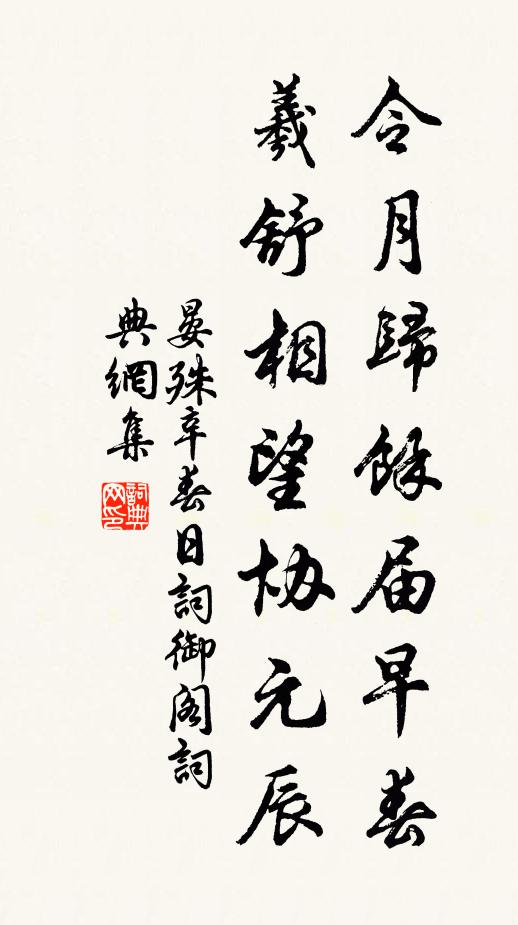 令月歸餘届早春
羲舒相望协元辰
晏殊辛春日詞御阁詞
典網集
詞典网印